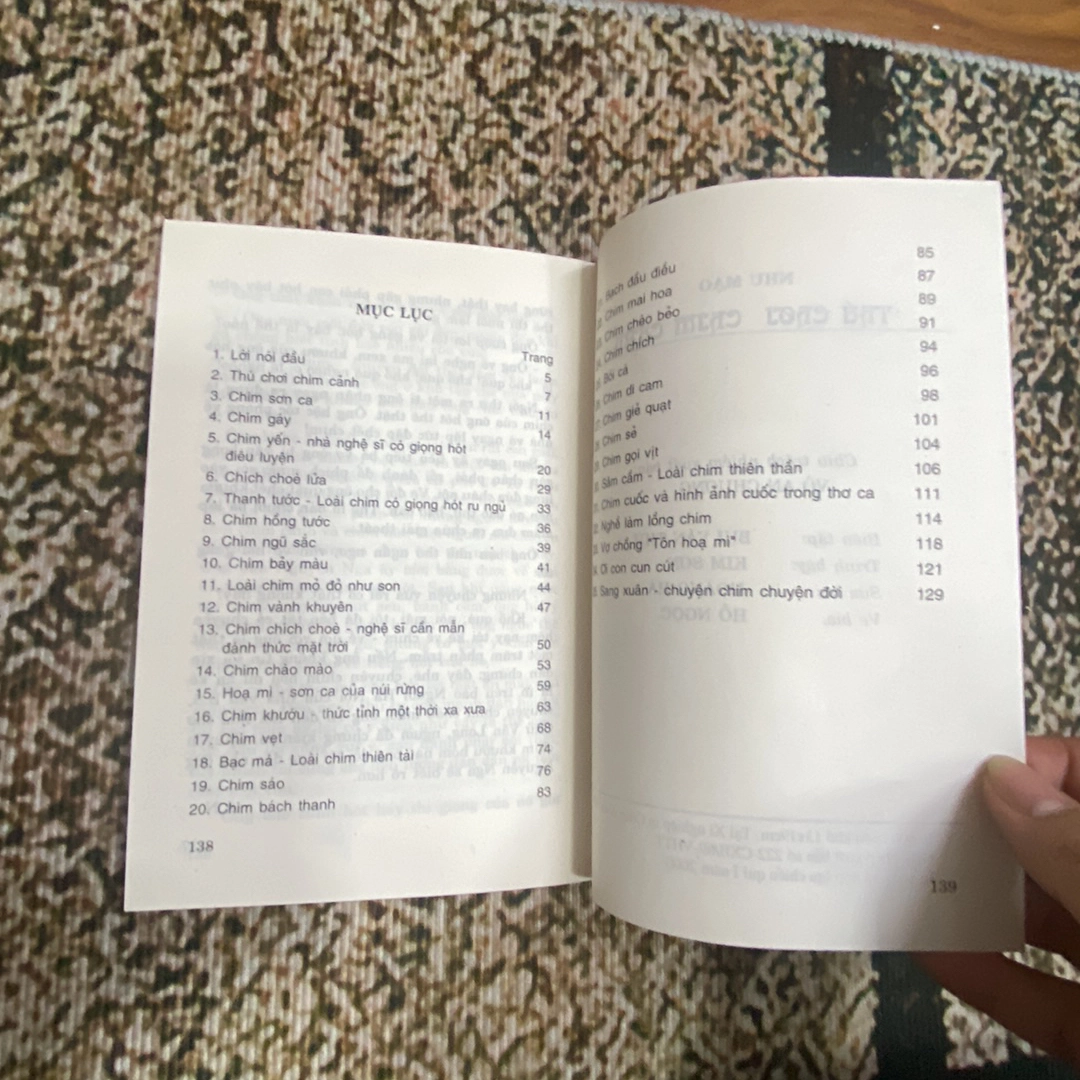 MỤC LỤC
Trang
1. Lời nói đầu 5
2. Thú chơi chim cảnh 7
3. Chim sơn ca 11
4. Chim gáy 14
5. Chim yến - nhà nghệ sĩ có giọng hót
điêu luyện 20
6. Chích choè lửa 29
7. Thanh tước - Loài chim có giọng hót ru ngủ 33
8. Chim hồng tước 36
9. Chim ngũ sắc 39
10. Chim bảy màu 41
11. Loài chim mỏ đỏ như son 44
12. Chim vành khuyên 47
13. Chim chích choè - nghệ sĩ cần mẫn
đánh thức mặt trời 50
14. Chim chào mào 53
15. Hoạ mi - sơn ca của núi rừng 59
16. Chim khướu - thức tỉnh một thời xa xưa 63
17. Chim vẹt 68
18. Bạc má - Loài chim thiên tài 74
19. Chim sáo 76
20. Chim bách thanh 83
138
Bạch đầu điểu 85
Chim mai hoa 87
Chim chèo bẻo 89
Chim chích 91
Bói cá 94
Chim di cam 96
Chim giẻ quạt 98
Chim sẻ 101
Chim gọi vịt 104
Sâm cầm - Loài chim thiên thần 106
Chim cuốc và hình ảnh cuốc trong thơ ca 111
Nghề làm lồng chim 114
Vợ chồng "Tôn hoạ mi" 118
Ơi con cun cút 121
Sang xuân - chuyện chim chuyện đời 129
139